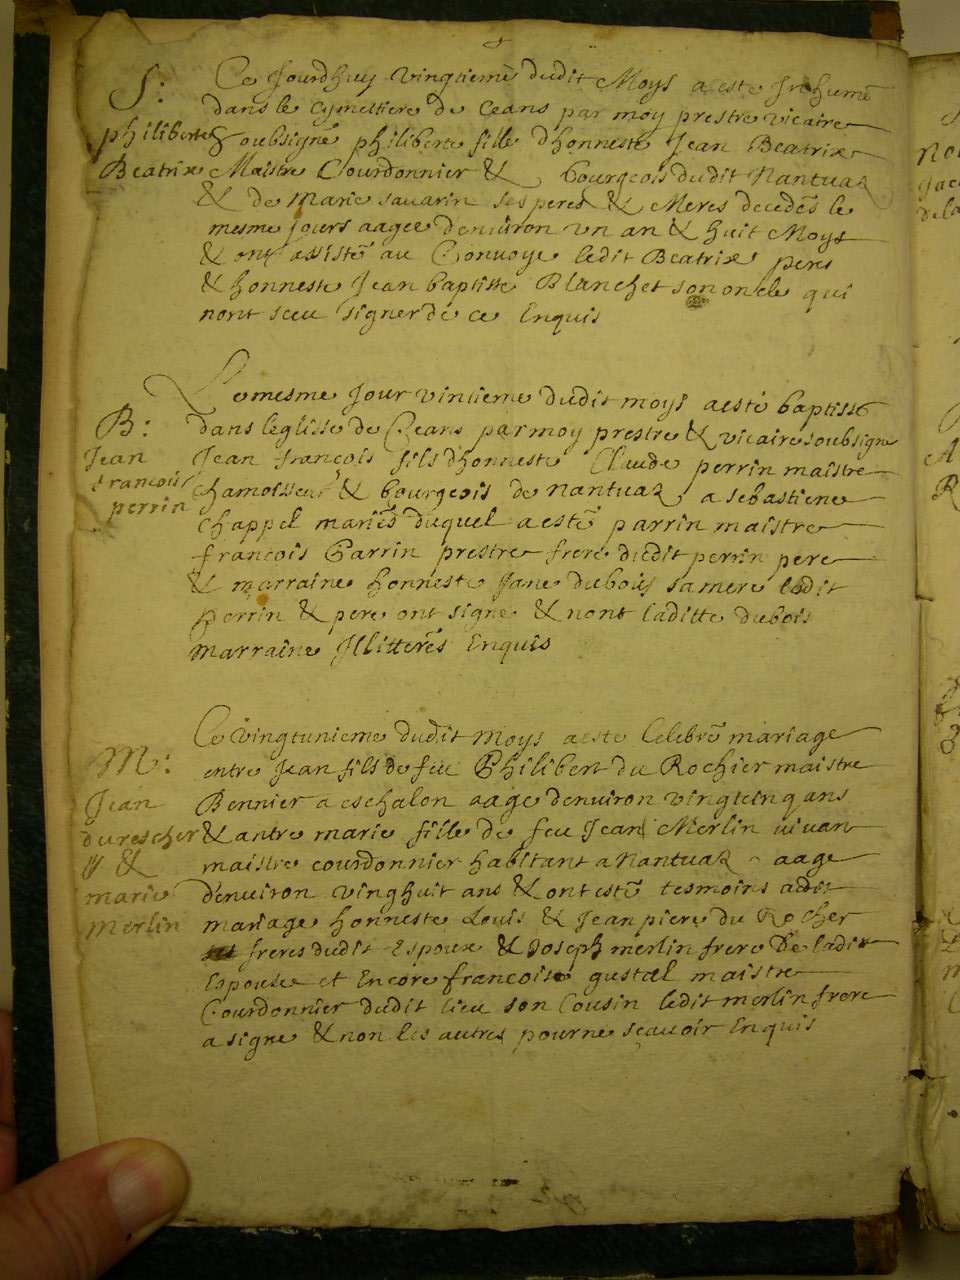 S:
philiberte
Beatrix
Ce Jourdhuy vingtieme dudit Moys a este Inhumé
dans le cymettiere de Ceans par moy prestre vicaire
soubsigné philiberte fille dhonneste Jean Beatrix
Maistre Courdonnier & bourgeois dudit Nantuaz
& de Marie savarin ses peres & Meres decedés le
mesme Jours aagée denviron un an & huit Moys
& ont assisté au Convoye ledit Beatrix pere
& honneste Jean baptiste Blanchet son oncle qui
nont sceu signer de ce Enquis
B:
Jean
francois
perrin
Le mesme Jour vintieme dudit moys a esté baptisé
dans leglisse de Ceans par moy prestre & vicaire soubsigne
Jean francois fils dhonneste Claude perrin maistre
chamoisseur & bourgeois de nantuaz a sebastiene
chappel mariés duquel a esté parrin maistre
francois Parrin prestre frere dudit perrin pere
& marraine honneste Jane dubois sa mere ledit
perrin & pere ont signe & nont laditte dubois
marraine Illitterés Enquis
M:
Jean
&
marie
merlin
Ce vingtunieme dudit Moys a este Celebré mariage
entre Jean fils de feu Philibert du Rochier maistre
a eschalon aage denviron vingtcinq ans
& antre marie fille de feu Jean Merlin vivan
maistre courdonnier habitant a nantuaz aage
denviron vinghuit ans & ont esté tesmoins audit
mariage honneste Louis & Jean piere du Rocher
freres dudit Espoux & Joseph merlin frere De ladit
Espouse et Encore francois gustal maistre
Courdonnier dudit lieu son Cousin ledit merlin frere
a signe & non les autres pour ne scavoir Enquis